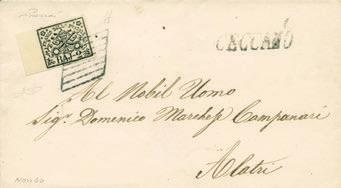 BAJ 2
CECCANO
Al Nobil Uomo
Sig. Domenico Marchese Campanari
Alatri